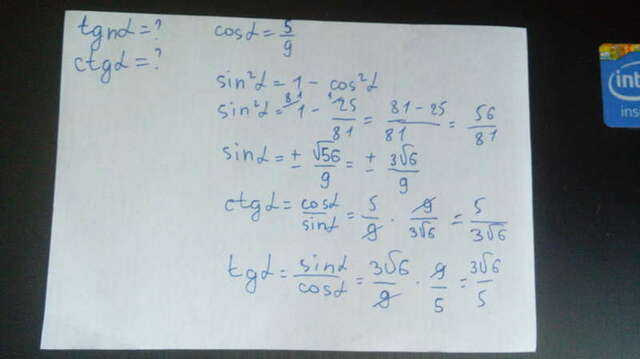 tgnα = ?
ctgα = ?
cosα = 5/9
sin²α = 1 - cos²α
sin²α = ⁸¹1 - 25/81 = 81 - 25/81 = 56/81
sinα = ± √56/9 = ± 3√6/9
ctgα = cosα/sinα = 5/9 · 9/3√6 = 5/3√6
tgα = sinα/cosα = 3√6/9 · 9/5 = 3√6/5